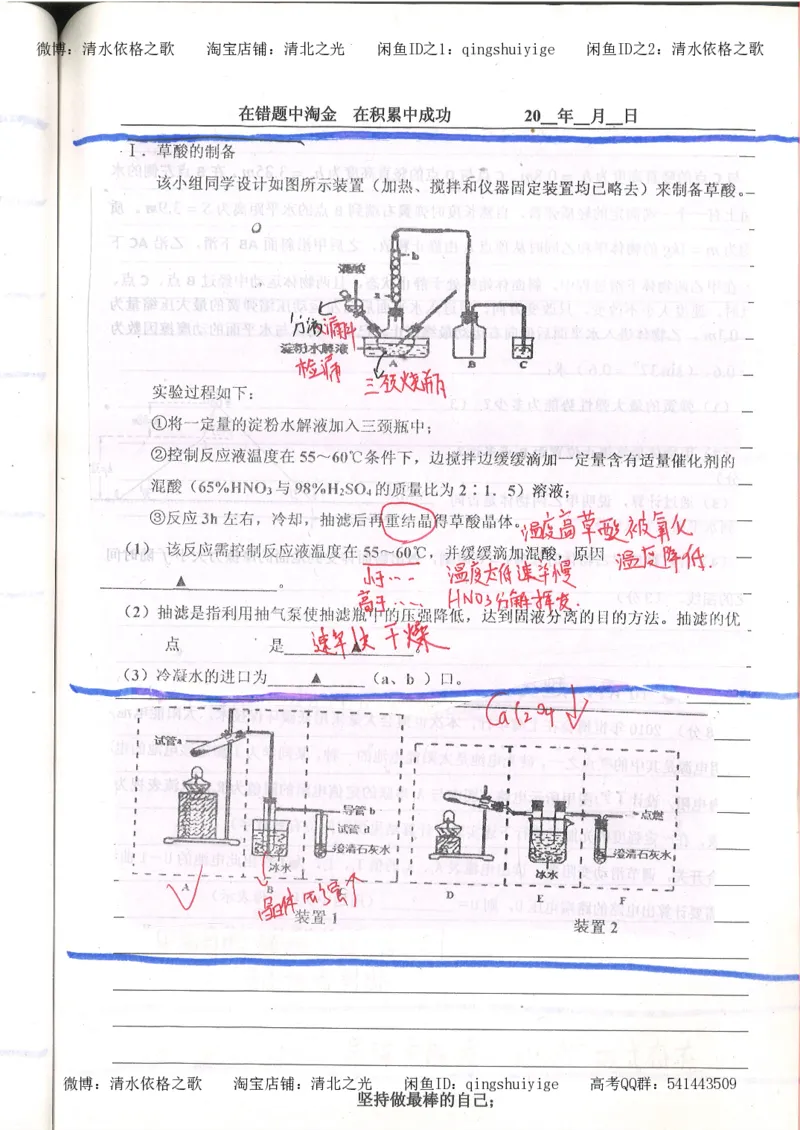 微博：清水依格之歌 淘宝店铺：清北之光 闲鱼ID之1：qingshuiyige 闲鱼ID之2：清水依格之歌
在错题中淘金 在积累中成功 20__年__月__日
Ⅰ．草酸的制备
该小组同学设计如图所示装置（加热、搅拌和仪器固定装置均已略去）来制备草酸。
b
混酸
a
分液漏斗
淀粉水解液
检漏
A B C
三颈烧瓶
实验过程如下：
①将一定量的淀粉水解液加入三颈瓶中；
②控制反应液温度在 55～60℃条件下，边搅拌边缓缓滴加一定量含有适量催化剂的
混酸（65%HNO₃与 98%H₂SO₄的质量比为 2：1．5）溶液；
③反应 3h 左右，冷却，抽滤后再重结晶得草酸晶体。
温度高草酸被氧化
（1） 该反应需控制反应液温度在 55～60℃，并缓缓滴加混酸，原因
温度降低.
▲ 。
低于… 温度太低速率慢
高于… HNO3分解挥发.
（2）抽滤是指利用抽气泵使抽滤瓶中的压强降低，达到固液分离的目的方法。抽滤的优
点 是 ▲ 。
速率快 干燥
（3）冷凝水的进口为 ▲ （a、b ）口。
CaC2O4↓
试管a
导管 b
试管 c
澄清石灰水
冰水
A B
装置 1
点燃
澄清石灰水
冰水
D E F
装置 2
微博：清水依格之歌 淘宝店铺：清北之光 闲鱼ID：qingshuiyige 高考QQ群：541443509
坚持做最棒的自己；